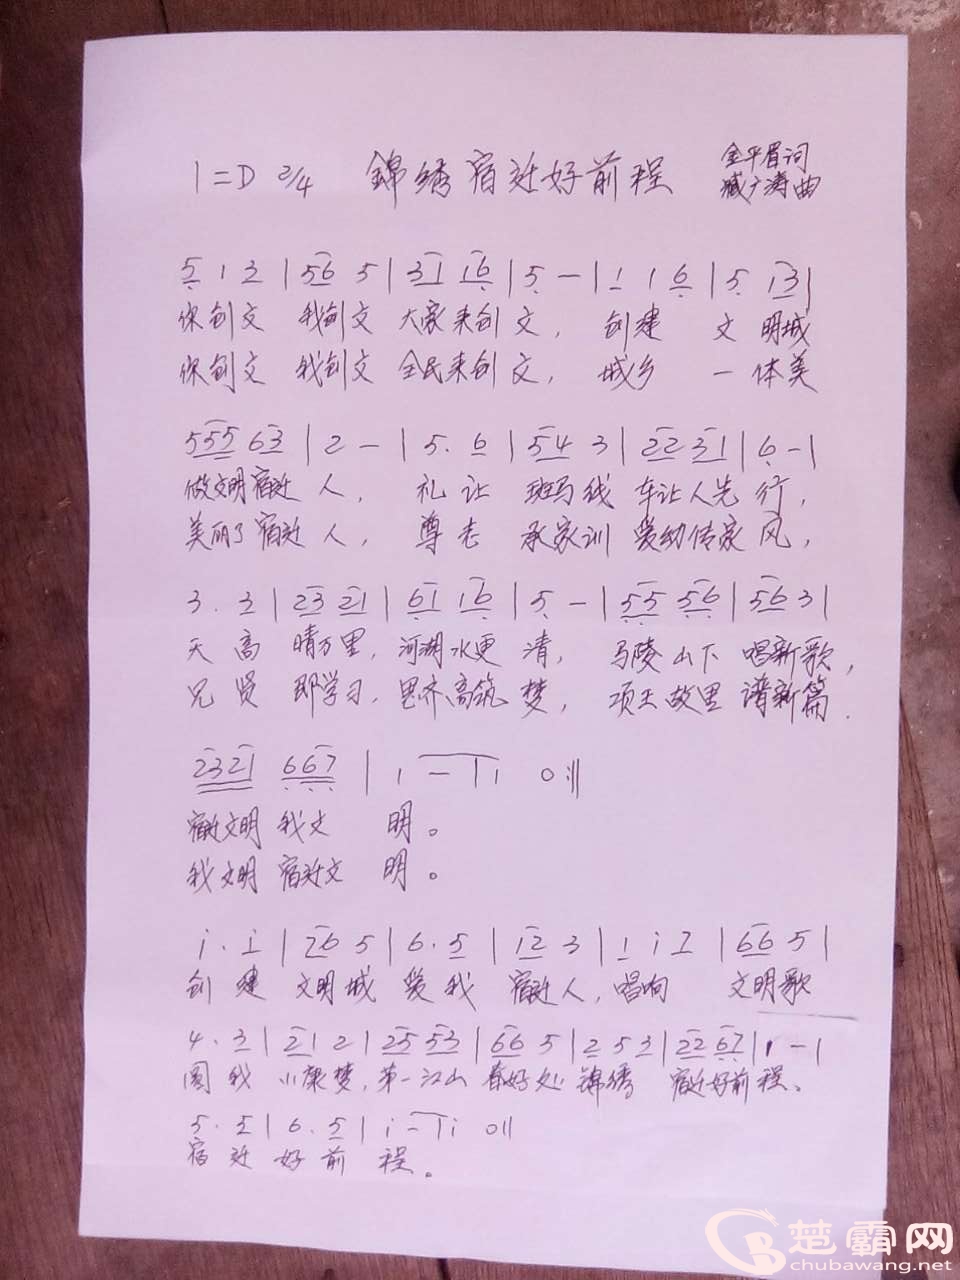 1=D 2/4 錦绣宿迁好前程 金平眉词
臧广涛曲
5 1 3 | 56 5 | 31 16 | 5 — | 1 1 6 | 5 13 |
你创文 我创文 大家来创文, 创建 文明城
你创文 我创文 全民来创文, 城乡 一体美
555 63 | 2 — | 5. 6 | 54 3 | 22 31 | 6 — |
做文明宿迁人, 礼让 斑马线 车让人先行,
美丽了宿迁人, 尊老 承家训 爱幼传家风,
3. 3 | 23 21 | 61 16 | 5 — | 55 56 | 56 3 |
天高 晴万里, 河湖水更清, 马陵山下 唱新歌,
兄贤 即学习, 思齐高筑梦, 项王故里 谱新篇.
2321 667 | 1 — | 1 0 :||
宿迁文明 我文明。
我文明 宿迁文明。
i. i | 76 5 | 6. 5 | 12 3 | 1 i 7 | 66 5 |
创建 文明城 爱我 宿迁人, 唱响 文明歌
4. 3 | 21 2 | 25 53 | 66 5 | 2 5 3 | 22 67 | 1 — |
圆我 小康梦, 第一江山 春好处 锦绣 宿迁好前程。
5. 5 | 6. 5 | i — | i 0 ||
宿迁好前程。
楚霸网
chubawang.net